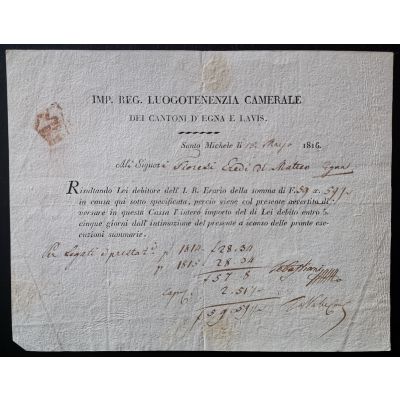 IMP. REG. LUOGOTENENZIA CAMERALE
DEI CANTONI D'EGNA E LAVIS.
Santo Michele li 12 Marzo 1816.
Alli Signori Eredi di Matteo Egna
Risultando Lei debitore dell'I. R. Erario della somma di F. 59 x. 51
in causa quì sotto specificata, perciò viene col presente avvertito di
versare in questa Cassa l'intero importo del di Lei debito entro 5.
cinque giorni dall'intimazione del presente a scanso delle pronte ese-
cuzioni summarie.
Per Legati 1814. f 28.34
p 1815. f 28.34
f 57.8
2.51
f 59.59